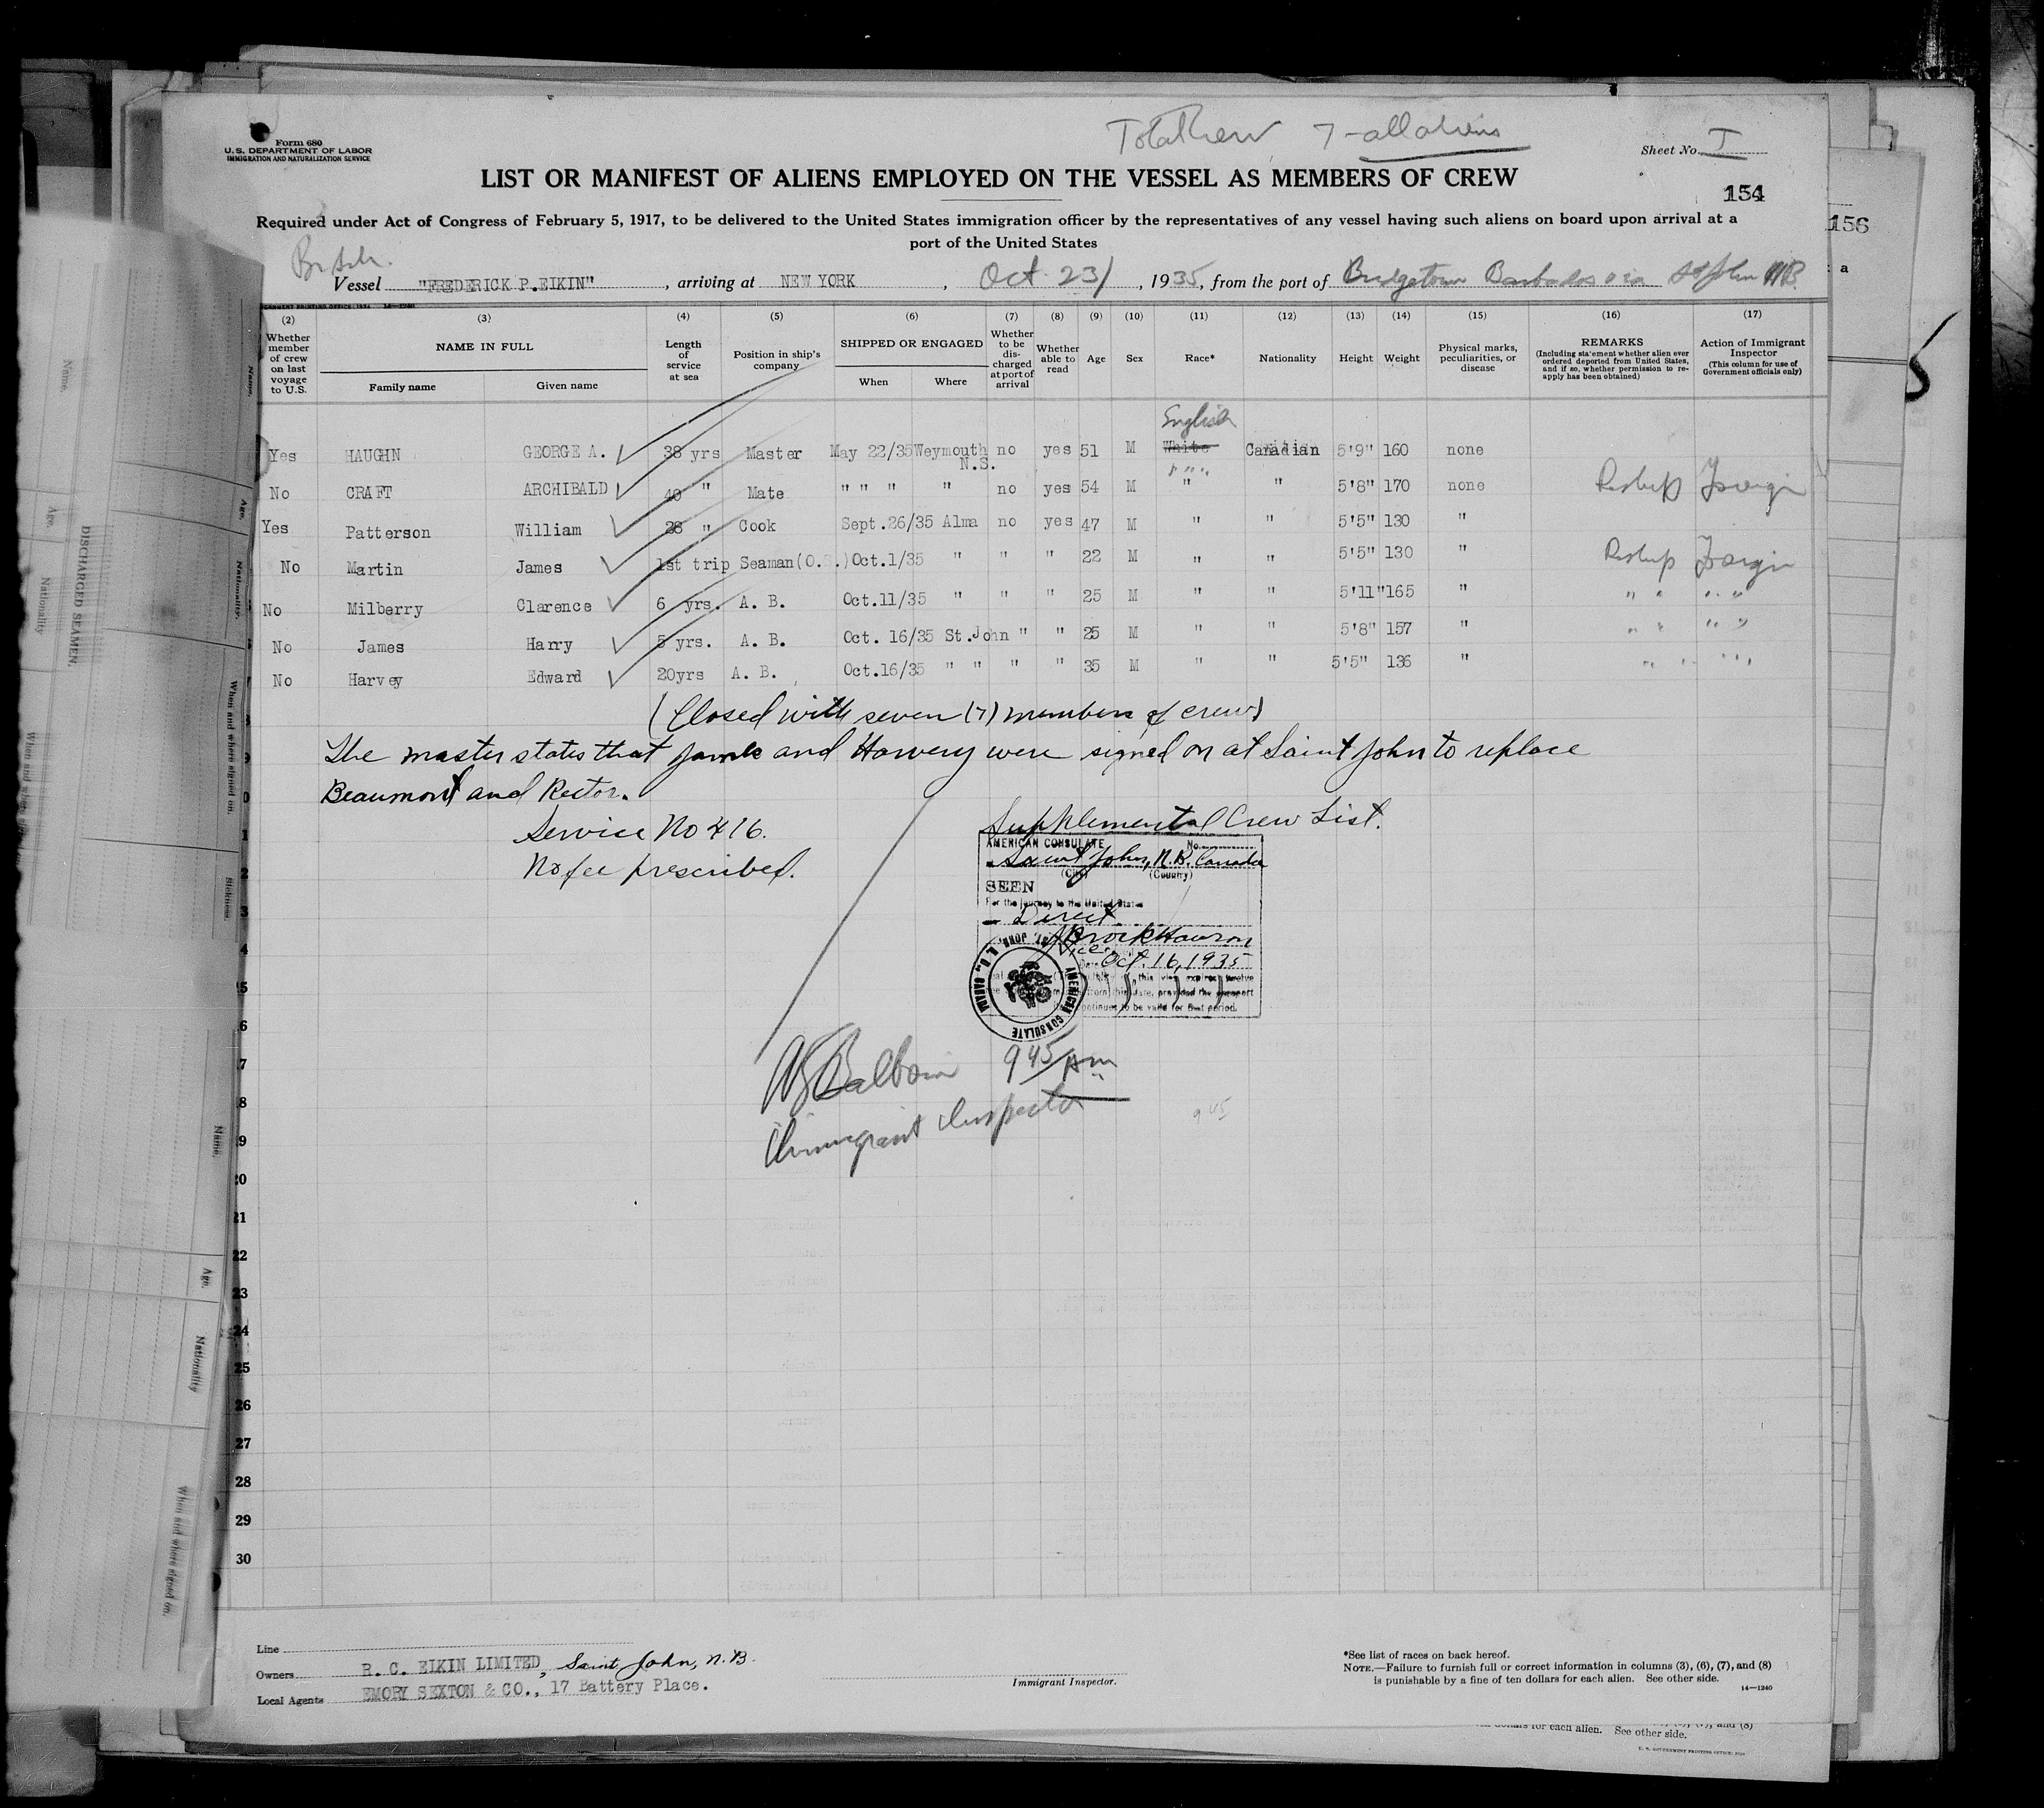 Total Crew 7 - all aliens
Form 680
U. S. DEPARTMENT OF LABOR
IMMIGRATION AND NATURALIZATION SERVICE
Sheet No. I
LIST OR MANIFEST OF ALIENS EMPLOYED ON THE VESSEL AS MEMBERS OF CREW
154
Required under Act of Congress of February 5, 1917, to be delivered to the United States immigration officer by the representatives of any vessel having such aliens on board upon arrival at a
port of the United States
156
Br Sch.
Vessel "FREDERICK P. EIKIN", arriving at NEW YORK, Oct 23/, 1935, from the port of Bridgetown Barbados via St John NB.
(2) (3) (4) (5) (6) (7) (8) (9) (10) (11) (12) (13) (14) (15) (16) (17)
Whether member of crew on last voyage to U.S.
NAME IN FULL
Family name Given name
Length of service at sea
Position in ship's company
SHIPPED OR ENGAGED
When Where
Whether to be discharged at port of arrival
Whether able to read
Age
Sex
Race*
Nationality
Height
Weight
Physical marks, peculiarities, or disease
REMARKS
(Including statement whether alien ever ordered deported from United States, and if so, whether permission to re-apply has been obtained)
Action of Immigrant Inspector
(This column for use of Government officials only)
English
Yes HAUGHN GEORGE A. 38 yrs Master May 22/35 Weymouth N.S. no yes 51 M White Canadian 5'9" 160 none
No CRAFT ARCHIBALD 40 " Mate " " " " no yes 54 M " " 5'8" 170 none
Yes Patterson William 28 " Cook Sept.26/35 Alma no yes 47 M " " 5'5" 130 "
No Martin James 1st trip Seaman(O.S.) Oct.1/35 " " " 22 M " " 5'5" 130 "
No Milberry Clarence 6 yrs. A. B. Oct.11/35 " " " 25 M " " 5'11" 165 " " " " "
No James Harry 5 yrs. A. B. Oct. 16/35 St.John " " 25 M " " 5'8" 157 " " " " "
No Harvey Edward 20yrs A. B. Oct.16/35 " " " " 35 M " " 5'5" 136 " " " " "
(Closed with seven (7) members of crew)
The master states that James and Harvey were signed on at Saint John to replace
Beaumont and Rector.
Service No 416.
No fee prescribed.
Supplemental Crew List.
AMERICAN CONSULATE No.
Saint John, N.B. Canada
(City) (Country)
SEEN
For the journey to the United States
Direct
Vice
Oct. 16, 1935
this visa expires twelve
from this date, provided the passport
continues to be valid for that period.
AMERICAN CONSULATE ST. JOHN, N. B., CANADA
9 45 AM
Immigrant Inspector
9 45
20
21
22
23
24
25
26
27
28
29
30
Line
Owners R. C. EIKIN LIMITED, Saint John, N.B.
Local Agents EMORY SEXTON & CO., 17 Battery Place.
Immigrant Inspector.
*See list of races on back hereof.
NOTE.—Failure to furnish full or correct information in columns (3), (6), (7), and (8)
is punishable by a fine of ten dollars for each alien. See other side.
14—1240
dollars for each alien. See other side.
DISCHARGED SEAMEN.
Name.
Age.
Nationality
When and where signed on.